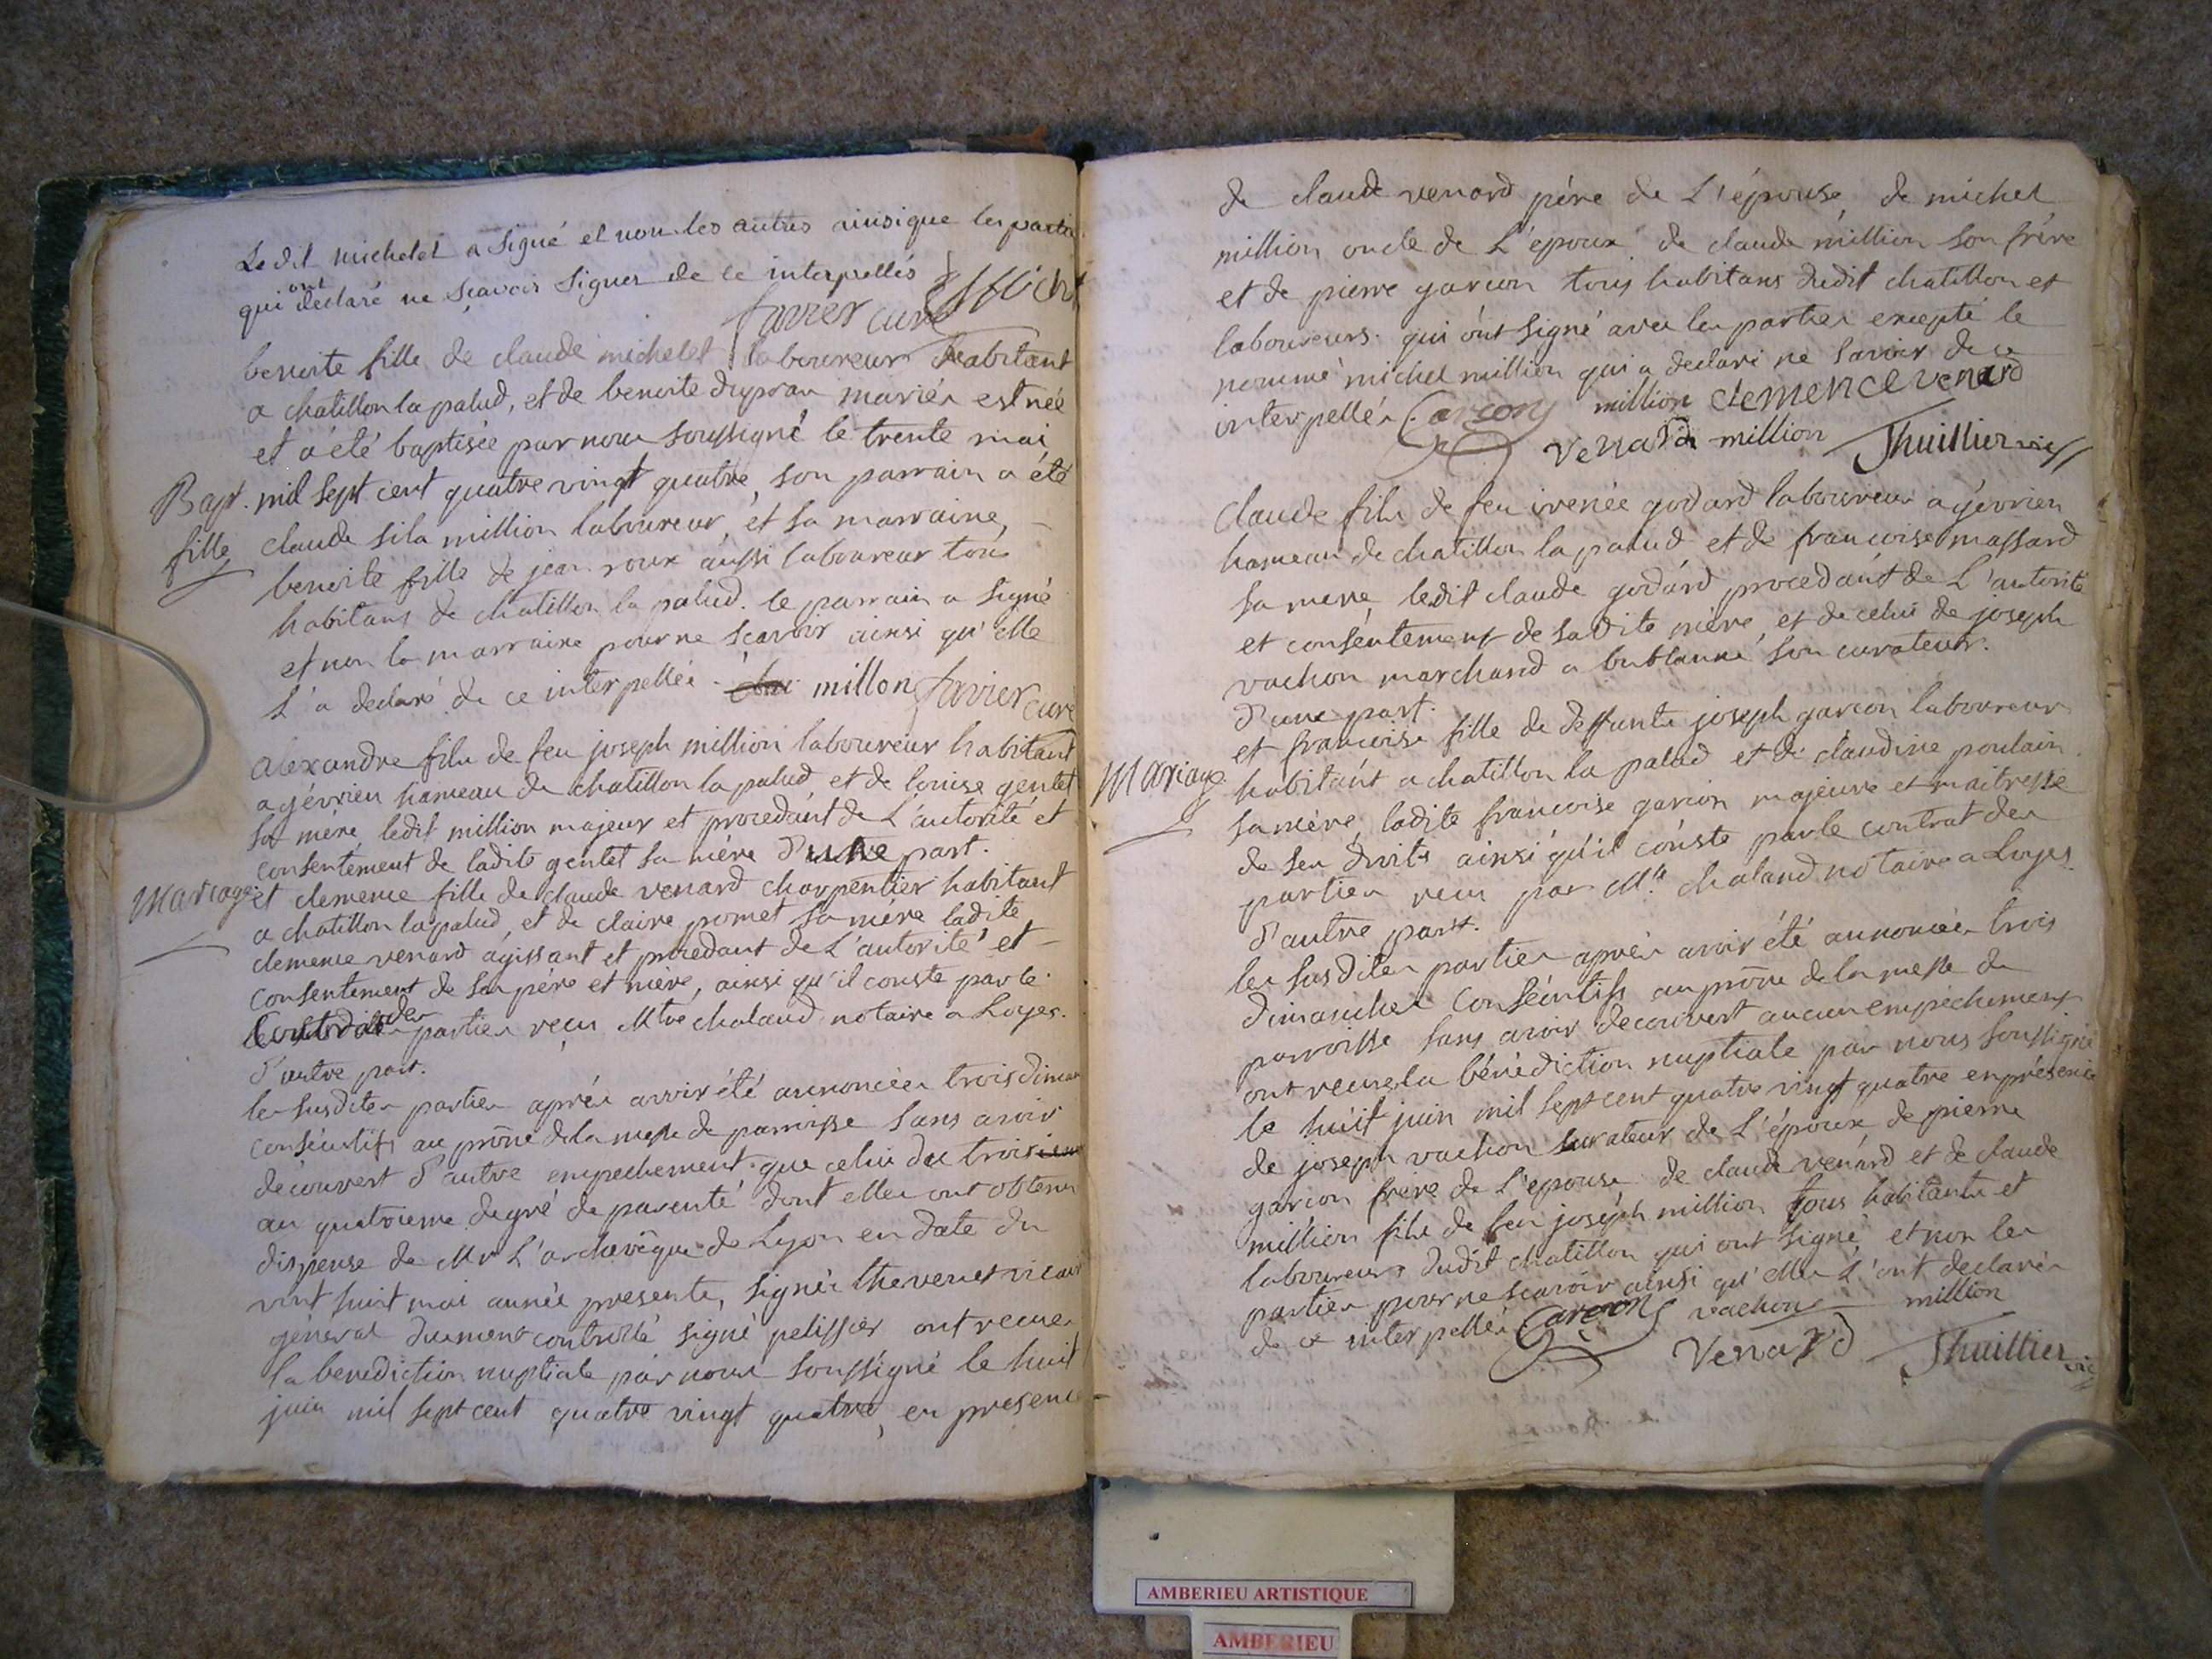 Le dit michelet a signé et non les autres ainsi que les parties
qui ont declaré ne sçavoir signer de ce interpellés
favier curé
benoite fille de claude michelet laboureur habitant
a chatillon la palud, et de benoite dupran mariés est née
et a été baptisée par nous soussigné le trente mai
Bapt. mil sept cent quatre vingt quatre, son parrain a été
fille claude sila million laboureur, et sa marraine,
benoite fille de jean roux aussi laboureur tous
habitans de chatillon la palud. le parrain a signé
et non la marraine pour ne sçavoir ainsi qu'elle
l'a declaré de ce interpellée. millon favier curé
alexandre fils de feu joseph million laboureur habitant
a gévrieu hameau de chatillon la palud, et de louise gentet
sa mére, ledit million majeur et procedant de L'autorité et
consentement de ladite gentet sa mère d'une part.
Mariage et clemence fille de claude venard charpentier habitant
a chatillon la palud, et de claire promet sa mére ladite
clemence venard agissant et procedant de L'autorité et
consentement de ses pére et mére, ainsi qu'il conste par le
contrat des parties reçu Mtre chaland notaire a Loyes.
d'autre part.
les susdites parties aprés avoir été annoncées trois diman
consécutifs au prône de la messe de parroisse sans avoir
découvert d'autre empechement que celui du trois
au quatrieme degré de parenté dont elles ont obtenu
dispense de Mr L'archevêque de Lyon en date du
vint huit mai année presente, signée thevenet vicaire
général duement controllé signé pelissier ont recues
la benediction nuptiale par nous soussigné le huit
juin mil sept cent quatre vingt quatre, en presence
de claude venard pére de L'épouse, de michel
million oncle de L'epoux de claude million son frére
et de pierre garcon tous habitans dudit chatillon et
laboureurs. qui ont signé avec les parties excepté le
nommé michel million qui a declaré ne savoir de ce
interpellés Garçon million clemence venard
venard million Thuillier vic
Claude fils de feu irenée godard laboureur a gévrieu
hameau de chatillon la palud et de francoise massard
sa mere, ledit claude godard procedant de L'autorité
et consentement de sa dite mére, et de celui de joseph
vachon marchand a bublanne son curateur.
d'une part.
et francoise fille de deffunts joseph garcon laboureur
Mariage habitant a chatillon la palud et de claudine poulain
sa mére, ladite francoise garcon majeure et maitresse
de ses droits ainsi qu'il conste par le contrat des
parties reçu par Mre chaland notaire a Loyes.
d'autre part.
les susdites parties aprés avoir été annoncées trois
dimanches consécutifs au prône de la messe de
parroisse sans avoir découvert aucun empechement
ont recues la bénédiction nuptiale par nous soussigné
le huit juin mil sept cent quatre vingt quatre en présence
de joseph vachon curateur de L'époux de pierre
garcon frere de L'epouse de claude venard et de claude
million fils de feu joseph million tous habitants et
laboureurs dudit chatillon qui ont signé et non les
parties pour ne scavoir ainsi qu'elles L'ont declarés
de ce interpellés Garçon vachon million
Venard Thuillier vic
AMBERIEU ARTISTIQUE
AMBERIEU